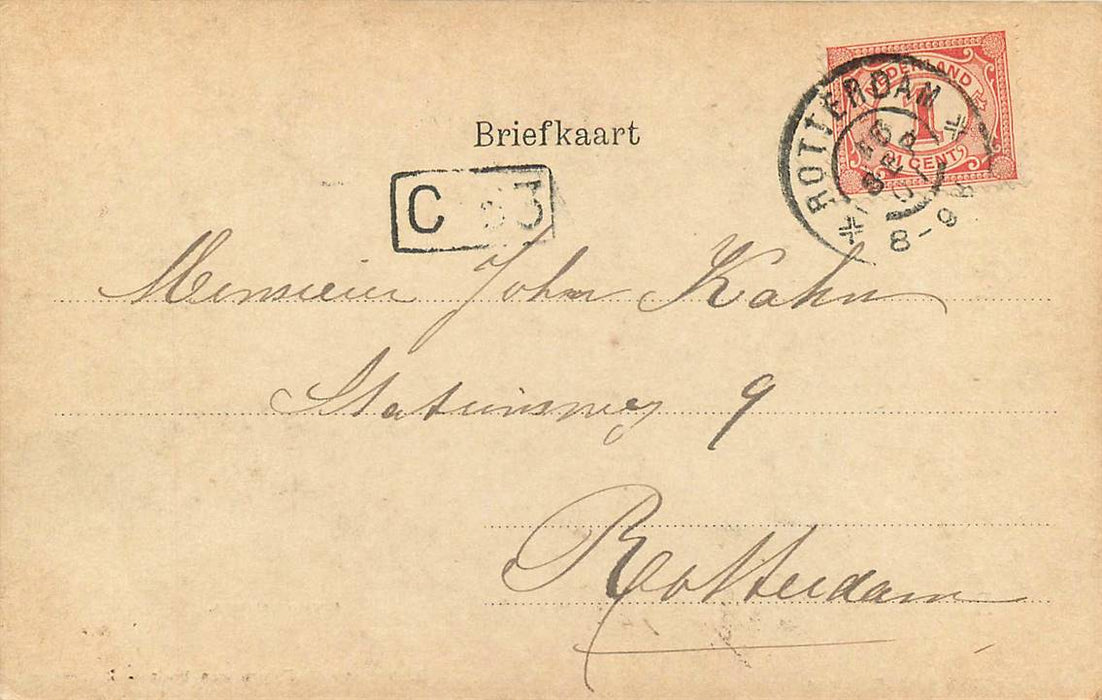 Briefkaart
NEDERLAND
1
CENT
ROTTERDAM
SEP
01
8-9
C
Monsieur John Kahn
Stationsweg 9
Rotterdam